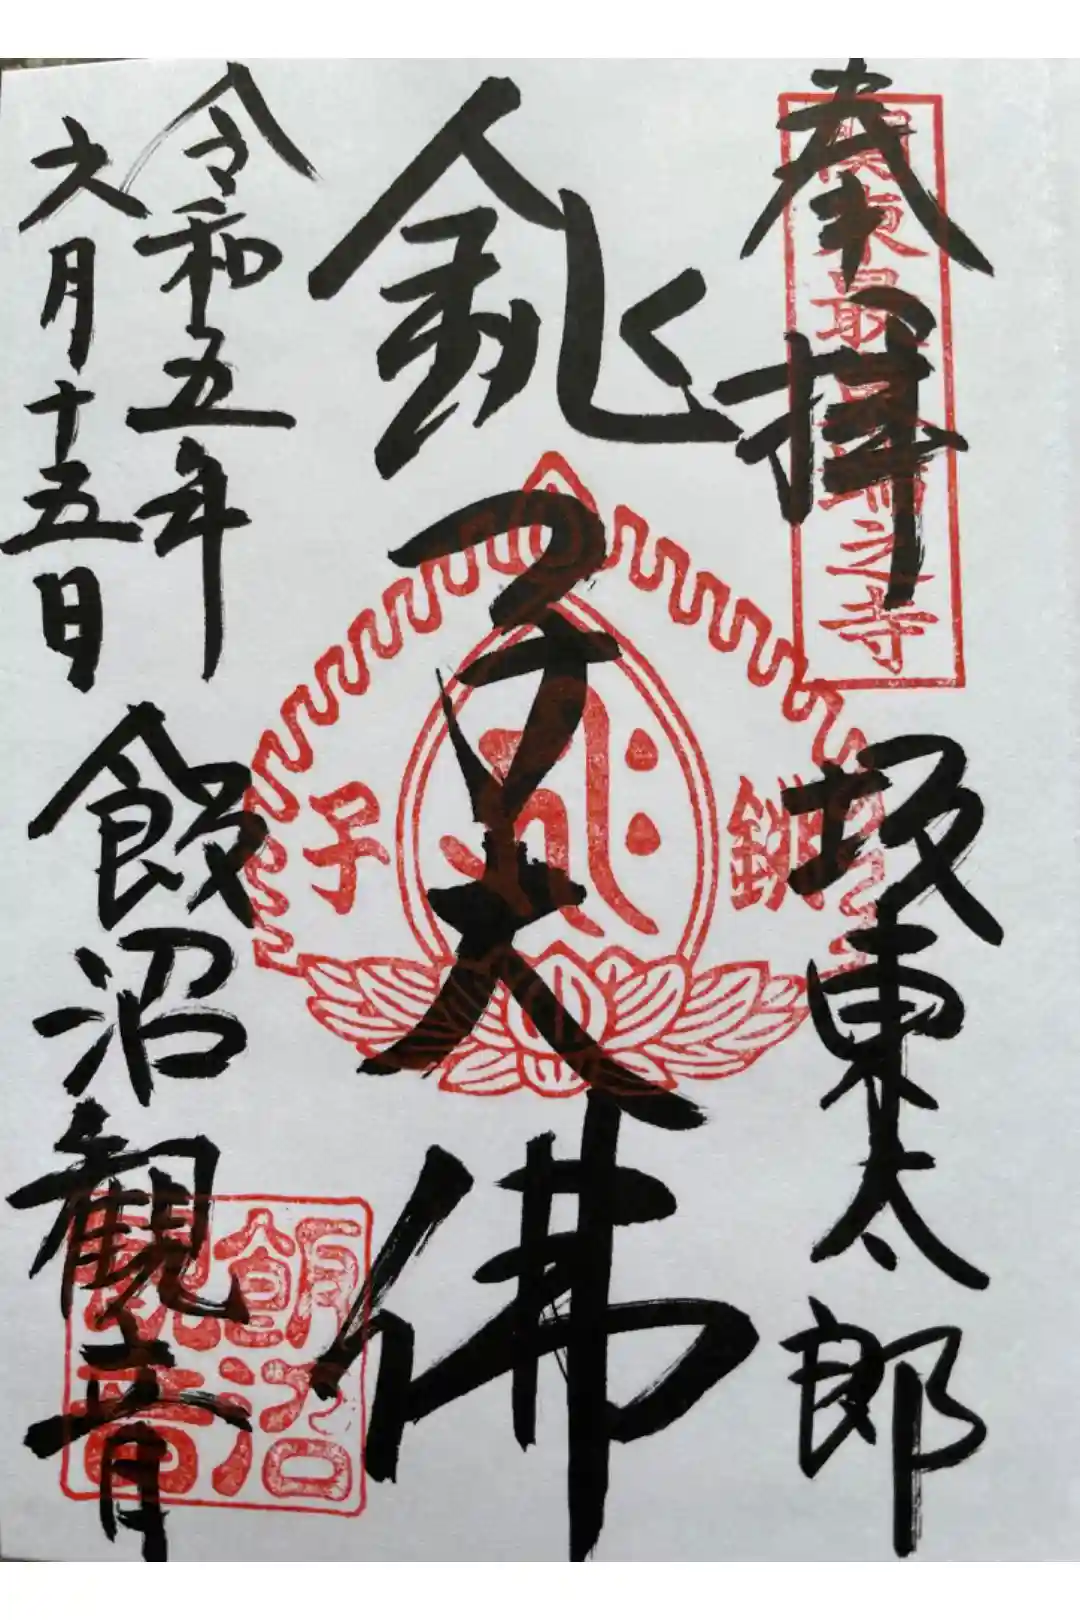 奉拝
関東最東端之寺
坂東太郎
銚子大佛
銚子
令和五年
六月十五日
飯沼観音
飯沼観音